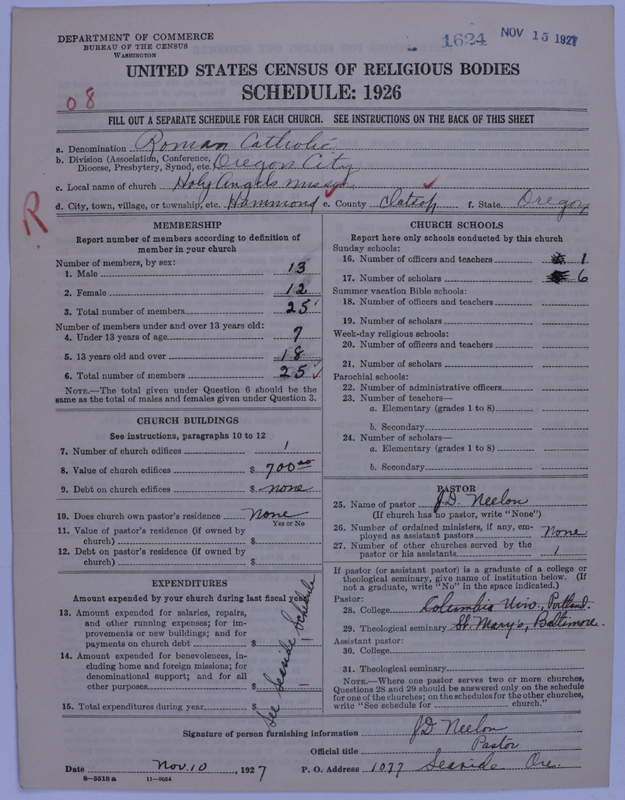 DEPARTMENT OF COMMERCE
BUREAU OF THE CENSUS
WASHINGTON
1624 NOV 15 1927
UNITED STATES CENSUS OF RELIGIOUS BODIES
SCHEDULE: 1926
08
FILL OUT A SEPARATE SCHEDULE FOR EACH CHURCH. SEE INSTRUCTIONS ON THE BACK OF THIS SHEET
a. Denomination Roman Catholic
b. Division (Association, Conference, Diocese, Presbytery, Synod, etc. Oregon City
c. Local name of church Holy Angels Mission
d. City, town, village, or township, etc. Hammond e. County Clatsop f. State Oregon
R
MEMBERSHIP
Report number of members according to definition of
member in your church
Number of members, by sex:
1. Male 13
2. Female 12
3. Total number of members 25
Number of members under and over 13 years old:
4. Under 13 years of age 7
5. 13 years old and over 18
6. Total number of members 25
NOTE.—The total given under Question 6 should be the
same as the total of males and females given under Question 3.
CHURCH BUILDINGS
See instructions, paragraphs 10 to 12
7. Number of church edifices 1
8. Value of church edifices $ 700.00
9. Debt on church edifices $ none
10. Does church own pastor's residence None
Yes or No
11. Value of pastor's residence (if owned by
church) $
12. Debt on pastor's residence (if owned by
church) $
EXPENDITURES
Amount expended by your church during last fiscal year
13. Amount expended for salaries, repairs,
and other running expenses; for im-
provements or new buildings; and for
payments on church debt $
14. Amount expended for benevolences, in-
cluding home and foreign missions; for
denominational support; and for all
other purposes $
15. Total expenditures during year $
See Seaside Schedule
CHURCH SCHOOLS
Report here only schools conducted by this church
Sunday schools:
16. Number of officers and teachers 1
17. Number of scholars 6
Summer vacation Bible schools:
18. Number of officers and teachers
19. Number of scholars
Week-day religious schools:
20. Number of officers and teachers
21. Number of scholars
Parochial schools:
22. Number of administrative officers
23. Number of teachers—
a. Elementary (grades 1 to 8)
b. Secondary
24. Number of scholars—
a. Elementary (grades 1 to 8)
b. Secondary
PASTOR
25. Name of pastor J.D. Neelon
(If church has no pastor, write "None")
26. Number of ordained ministers, if any, em-
ployed as assistant pastors None
27. Number of other churches served by the
pastor or his assistants 1
If pastor (or assistant pastor) is a graduate of a college or
theological seminary, give name of institution below. (If
not a graduate, write "No" in the space indicated.)
Pastor:
28. College Columbia Univ., Portland.
29. Theological seminary St. Mary's, Baltimore.
Assistant pastor:
30. College
31. Theological seminary
NOTE.—Where one pastor serves two or more churches,
Questions 28 and 29 should be answered only on the schedule
for one of the churches; on the schedules for the other churches,
write "See schedule for church."
Signature of person furnishing information J D Neelon
Official title Pastor
Date Nov. 10, 1927 P. O. Address 1077 Seaside Ore.
8-5518a 11-9054